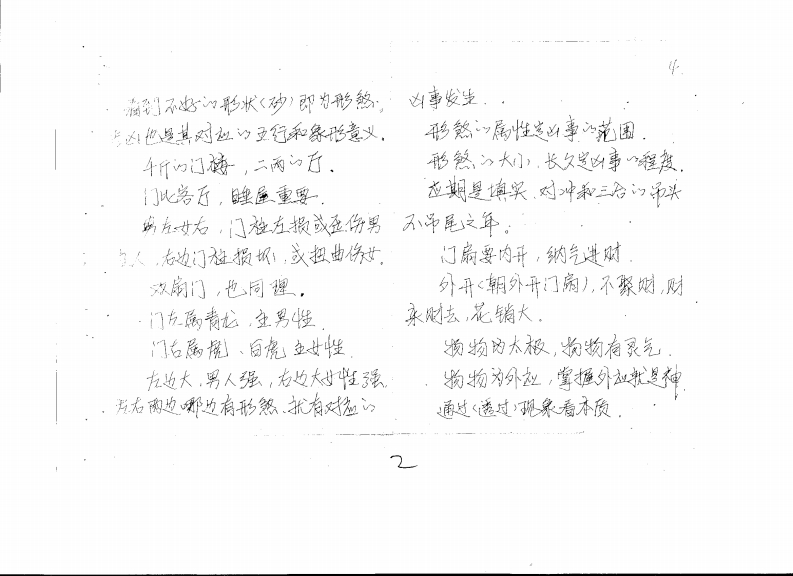 看到不好的形状(砂)即为形煞,
吉凶也是其对应的五行和象形意义.
千斤的门楼,二两的厅.
门比客厅,睡屋重要.
男左女右,门柱左损或歪伤男
主人,右边门柱损坏,或扭曲伤女.
双扇门,也同理。
门左属青龙,主男性.
门右属虎、白虎主女性.
左边大,男人强,右边大女性强.
左右两边哪边有形煞、就有对应的
4.
凶事发生.
形煞的属性定凶事的范围.
形煞的大小、长久定凶事的程度.
应期是填实、对冲和三合的吊头
不吊尾之年。
门扇要内开,纳气进财.
外开(朝外开门扇),不聚财,财
来财去,花销大.
物物为太极,物物有灵气.
物物为外应,掌握外应就是神.
通过(透过)现象看本质.
2